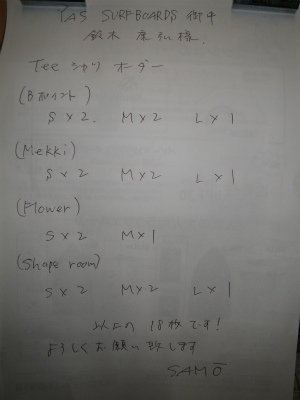 YAS SURFBOARDS 御中
鈴木 康弘様.
Tee シャツ オーダー
(Bポイント)
S×2. M×2 L×1
(Mekki)
S×2 M×2 L×1
(Flower)
S×2 M×1
(Shape room)
S×2 M×2 L×1
以上の 18枚です!
よろしくお願い致します
SAMŌ